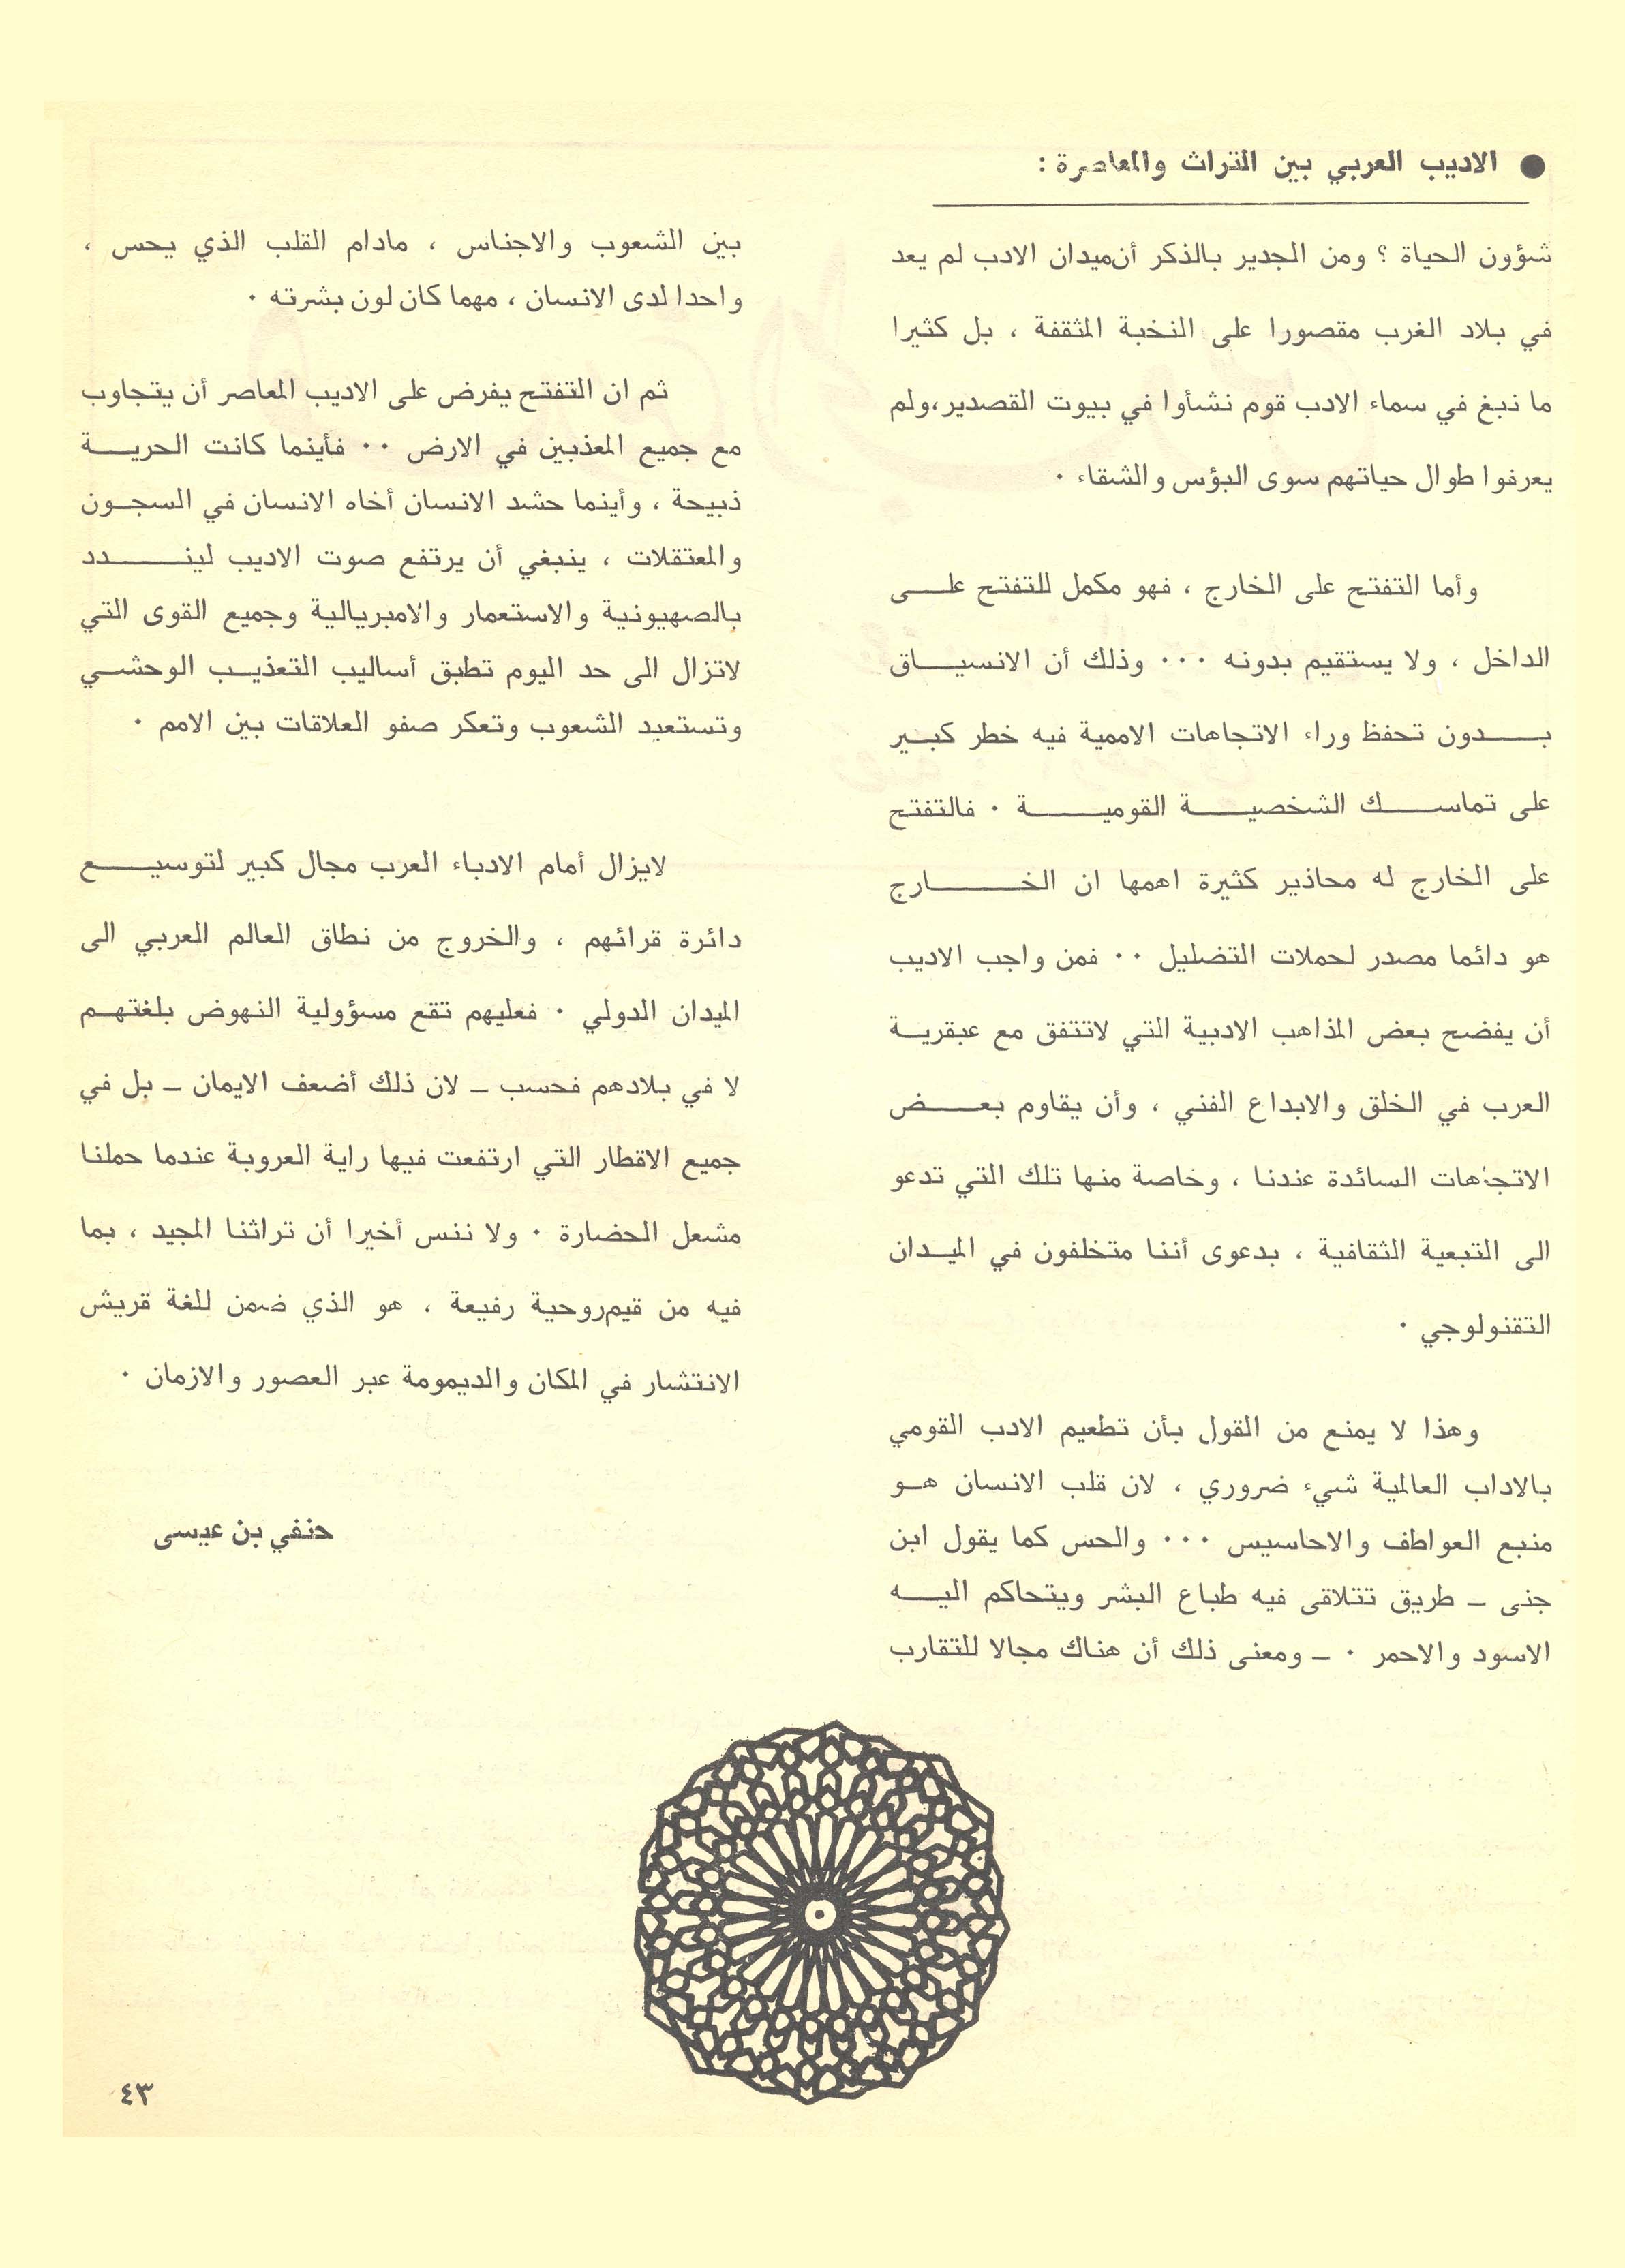 ● الاديب العربي بين التراث والمعاصرة :
شؤون الحياة ؟ ومن الجدير بالذكر أن ميدان الادب لم يعد
في بلاد الغرب مقصورا على النخبة المثقفة ، بل كثيرا
ما نبغ في سماء الادب قوم نشأوا في بيوت القصدير، ولم
يعرفوا طوال حياتهم سوى البؤس والشقاء ٠
وأما التفتح على الخارج ، فهو مكمل للتفتح على
الداخل ، ولا يستقيم بدونه ٠٠٠ وذلك أن الانسياق
بدون تحفظ وراء الاتجاهات الاممية فيه خطر كبير
على تماسك الشخصية القومية ٠ فالتفتح
على الخارج له محاذير كثيرة اهمها ان الخارج
هو دائما مصدر لحملات التضليل ٠٠ فمن واجب الاديب
أن يفضح بعض المذاهب الادبية التي لاتتفق مع عبقرية
العرب في الخلق والابداع الفني ، وأن يقاوم بعض
الاتجاهات السائدة عندنا ، وخاصة منها تلك التي تدعو
الى التبعية الثقافية ، بدعوى أننا متخلفون في الميدان
التقنولوجي ٠
وهذا لا يمنع من القول بأن تطعيم الادب القومي
بالاداب العالمية شيء ضروري ، لان قلب الانسان هو
منبع العواطف والاحاسيس ٠٠٠ والحس كما يقول ابن
جنى ـ طريق تتلاقى فيه طباع البشر ويتحاكم اليه
الاسود والاحمر ٠ ـ ومعنى ذلك أن هناك مجالا للتقارب
بين الشعوب والاجناس ، مادام القلب الذي يحس ،
واحدا لدى الانسان ، مهما كان لون بشرته ٠
ثم ان التفتح يفرض على الاديب المعاصر أن يتجاوب
مع جميع المعذبين في الارض ٠٠ فأينما كانت الحرية
ذبيحة ، وأينما حشد الانسان أخاه الانسان في السجون
والمعتقلات ، ينبغي أن يرتفع صوت الاديب ليندد
بالصهيونية والاستعمار والامبريالية وجميع القوى التي
لاتزال الى حد اليوم تطبق أساليب التعذيب الوحشي
وتستعيد الشعوب وتعكر صفو العلاقات بين الامم ٠
لايزال أمام الادباء العرب مجال كبير لتوسيع
دائرة قرائهم ، والخروج من نطاق العالم العربي الى
الميدان الدولي ٠ فعليهم تقع مسؤولية النهوض بلغتهم
لا في بلادهم فحسب ـ لان ذلك أضعف الايمان ـ بل في
جميع الاقطار التي ارتفعت فيها راية العروبة عندما حملنا
مشعل الحضارة ٠ ولا ننس أخيرا أن تراثنا المجيد ، بما
فيه من قيم روحية رفيعة ، هو الذي ضمن للغة قريش
الانتشار في المكان والديمومة عبر العصور والازمان ٠
حنفي بن عيسى
٤٣